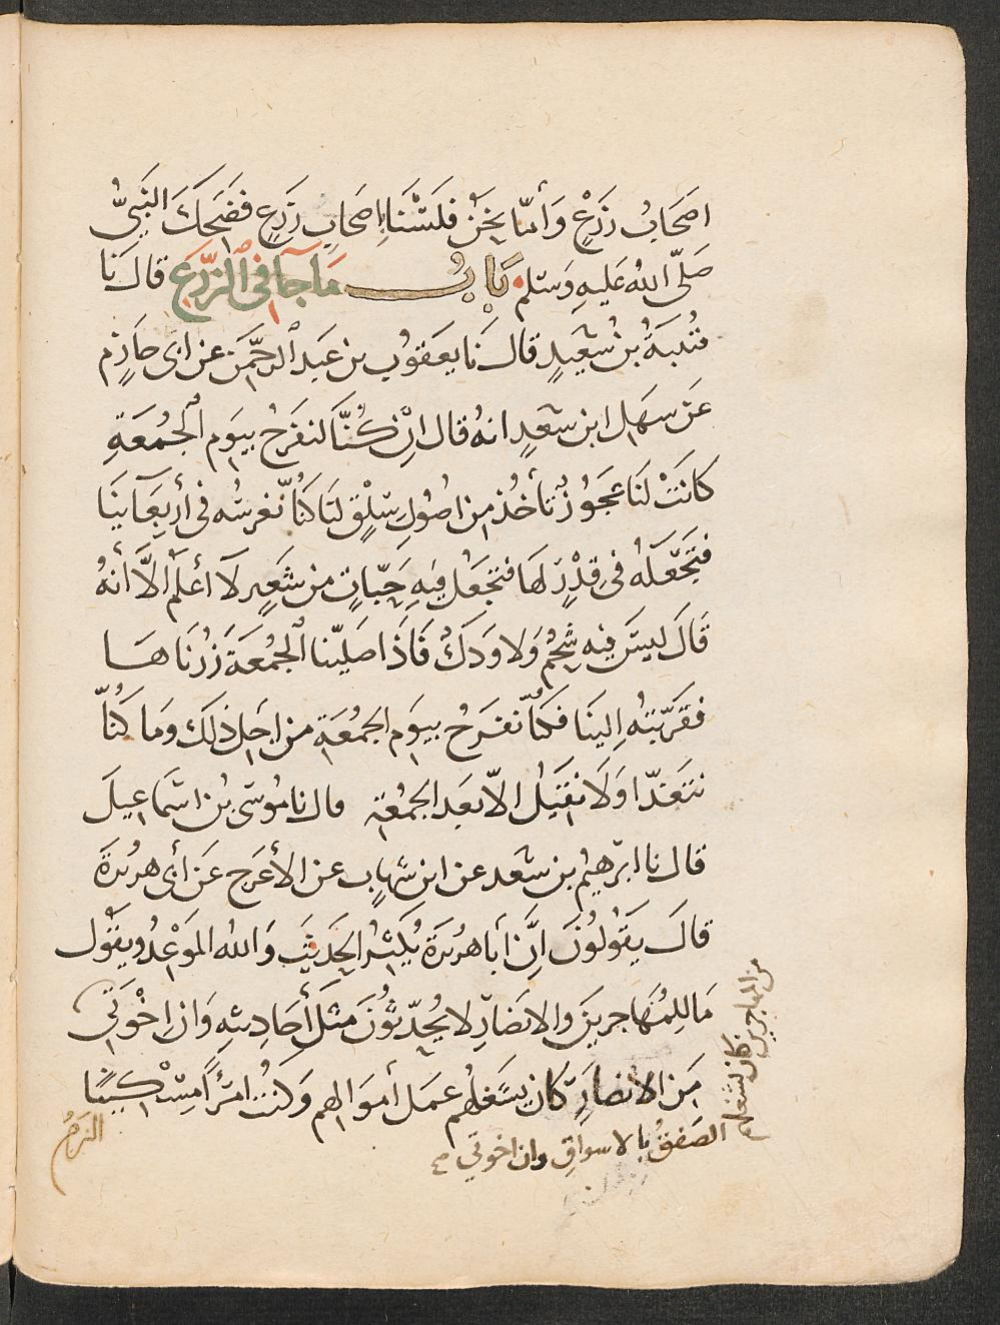 اصحاب زَرْعٍ وَأمّا نحْنُ فَلَسْنَا باِصحَابِ زَرعٍ فضَحِكَ النَبِيُّ
صَلّى الله عَليهِ وَسَلم بَابُ مَا جآ فى الزّرْعِ قال نَا
قُتَيبَةُ بنُ سَعِيدٍ قال نَا يعقوُب بن عَبد الرحمَّن عن ابى حَازمٍ
عَن سهَل ابن سَعدٍ انهُ قال اِنْ كُنَّا لنفَرحُ بيَوم الجُمعَةِ
كانَتْ لنَا عجَوُزٌ تَأخُذ من اصُولِ سِلْقٍ لنَا كنّا نغرسُه فى أربِعَآئِنَا
فتَجْعَلهُ فى قدْرٍ لهَا فتجعَل فيهِ حَبّاتٍ من شَعِيرٍ لآ أعلَم الاَّ أنهُ
قالَ ليسَ فيهِ شحْمٌ وَلا وَدَكٌ فَاذَا صَليّنا الجُمعَةَ زُرْنَاهَا
فقَرَّبتهُ اِلينَا فكنّا نفرَحُ بيوَم الجمُعَةِ من اجَل ذلكَ وَما كُنّا
نتَغدّا وَلَا نقَيلُ الاّ بعَد الجمُعَةِ قال نا مُوسَى بنُ اسمَاعِيلَ
قال نا ابرَهيمُ بن سَعد عن ابن شِهابٍ عن الأعرَج عَن أبى هريرَة
قالَ يَقوُلُونَ اِنَّ أبَا هريرَة يُكثِرُ الحَدِيثَ وَالله الموَعِدُ ويقوُل
مَا لِلمُهَاجرينَ وَالانصَارِ لا يُحَدّثوُنَ مثلَ أحَادِيثهِ وَان اِخْوَتى
مِنَ الانصَارِ كان يَشغلهُم عمَل أموَالهِم وَكنتُ امرَأً مِسْكيناً
من المهاجرين كان يشغلهم
الصَفقُ بالاسواقِ وان اخوتي صح
الزَمُ